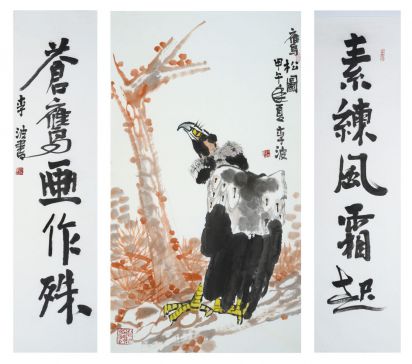 素練風霜起
鷹松圖
甲午年夏 李波
蒼鷹画作殊
李波書